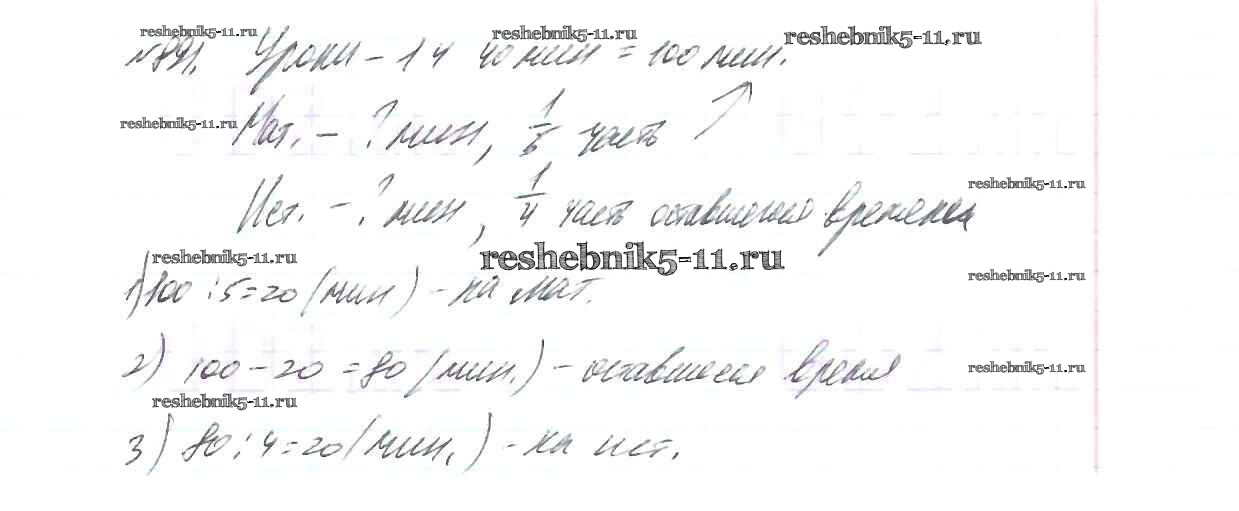 reshebnik5-11.ru reshebnik5-11.ru reshebnik5-11.ru
Уроки – 1 ч 40 мин = 100 мин.
reshebnik5-11.ru
Мат. – ? мин, 1/5 часть
reshebnik5-11.ru
Ист. – ? мин, 1/4 часть оставшегося времени
reshebnik5-11.ru reshebnik5-11.ru
reshebnik5-11.ru
1) 100 : 5 = 20 (мин) – на мат.
2) 100 – 20 = 80 (мин.) – оставшееся время
reshebnik5-11.ru
reshebnik5-11.ru
3) 80 : 4 = 20 (мин.) – на ист.